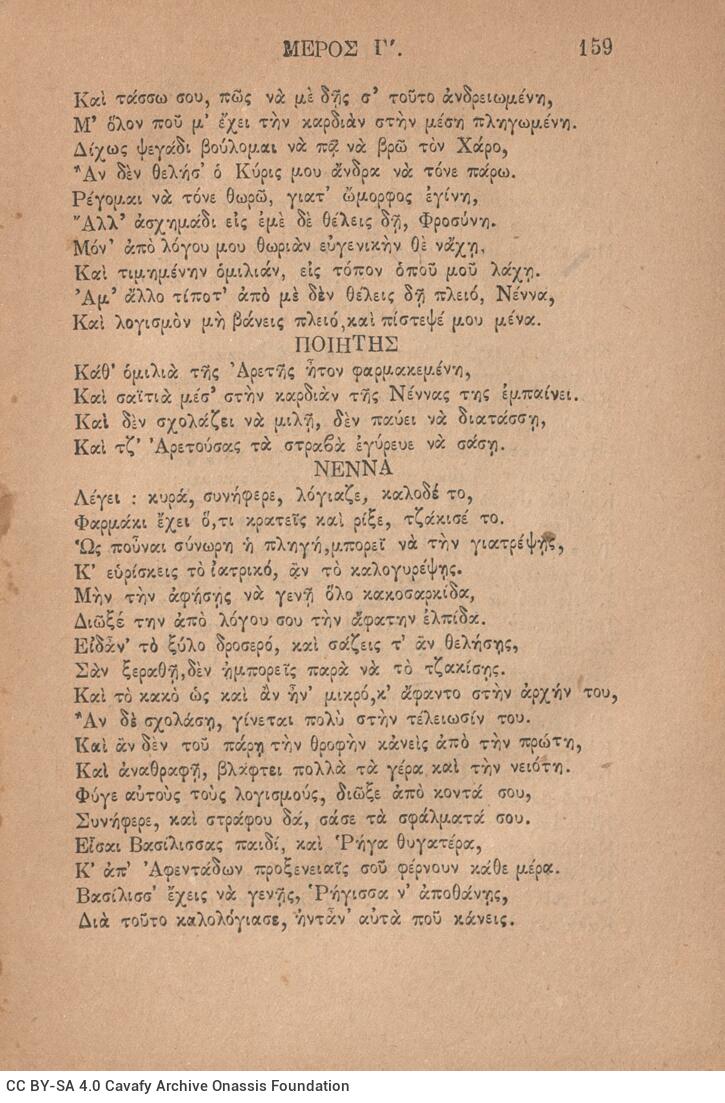 ΜΕΡΟΣ Γʹ. 159
Καὶ τάσσω σου, πῶς νὰ μὲ δῇς σ' τοῦτο ἀνδρειωμένη,
Μ' ὅλον ποῦ μ' ἔχει τὴν καρδιὰν στὴν μέση πληγωμένη.
Δίχως ψεγάδι βούλομαι νὰ πᾶ νὰ βρῶ τὸν Χάρο,
Ἂν δὲν θελήσ' ὁ Κύρις μου ἄνδρα νὰ τόνε πάρω.
Ρέγομαι νὰ τόνε θωρῶ, γιατ' ὤμορφος ἐγίνη,
Ἄλλ' ἀσχημάδι εἰς ἐμὲ δὲ θέλεις δῇ, Φροσύνη.
Μόν' ἀπὸ λόγου μου θωριὰν εὐγενικὴν θὲ νἄχῃ,
Καὶ τιμημένην ὁμιλιάν, εἰς τόπον ὁποῦ μοῦ λάχῃ.
Ἀμ' ἄλλο τίποτ' ἀπὸ μὲ δὲν θέλεις δῇ πλειό, Νέννα,
Καὶ λογισμὸν μὴ βάνεις πλειό, καὶ πίστεψέ μου μένα.
ΠΟΙΗΤΗΣ
Κάθ' ὁμιλιὰ τῆς Ἀρετῆς ἦτον φαρμακεμένη,
Καὶ σαϊτιὰ μέσ' στὴν καρδιὰν τῆς Νέννας της ἐμπαίνει.
Καὶ δὲν σχολάζει νὰ μιλῇ, δὲν παύει νὰ διατάσσῃ,
Καὶ τζ' Ἀρετούσας τὰ στραβὰ ἐγύρευε νὰ σάσῃ.
ΝΕΝΝΑ
Λέγει : κυρά, συνήφερε, λόγιαζε, καλοδέ το,
Φαρμάκι ἔχει ὅ,τι κρατεῖς καὶ ρίξε, τζάκισέ το.
Ὡς ποῦναι σύνωρη ἡ πληγή, μπορεῖ νὰ τὴν γιατρέψῃς,
Κ' εὑρίσκεις τὸ ἰατρικό, ἂν τὸ καλογυρέψῃς.
Μὴν τὴν ἀφήσῃς νὰ γενῇ ὅλο κακοσαρκίδα,
Διῶξέ την ἀπὸ λόγου σου τὴν ἄφατην ἐλπίδα.
Εἶδἂν' τὸ ξύλο δροσερό, καὶ σάζεις τ' ἂν θελήσῃς,
Σὰν ξεραθῇ, δὲν ἠμπορεῖς παρὰ νὰ τὸ τζακίσῃς.
Καὶ τὸ κακὸ ὡς καὶ ἂν ἦν' μικρό, κ' ἄφαντο στὴν ἀρχήν του,
Ἂν δὲ σχολάσῃ, γίνεται πολὺ στὴν τέλειωσίν του.
Καὶ ἂν δὲν τοῦ πάρῃ τὴν θροφὴν κἀνεὶς ἀπὸ τὴν πρώτη,
Καὶ ἀναθραφῇ, βλάφτει πολλὰ τὰ γέρα καὶ τὴν νειότη.
Φύγε αὐτοὺς τοὺς λογισμούς, διῶξε ἀπὸ κοντά σου,
Συνήφερε, καὶ στράφου δά, σάσε τὰ σφάλματά σου.
Εἶσαι Βασίλισσας παιδί, καὶ Ῥήγα θυγατέρα,
Κ' ἀπ' Ἀφεντάδων προξενειαῖς σοῦ φέρνουν κάθε μέρα.
Βασίλισσ' ἔχεις νὰ γενῇς, Ῥήγισσα ν' ἀποθάνῃς,
Διὰ τοῦτο καλολόγιασε, ἠντἆν' αὐτὰ ποῦ κάνεις.
CC BY-SA 4.0 Cavafy Archive Onassis Foundation